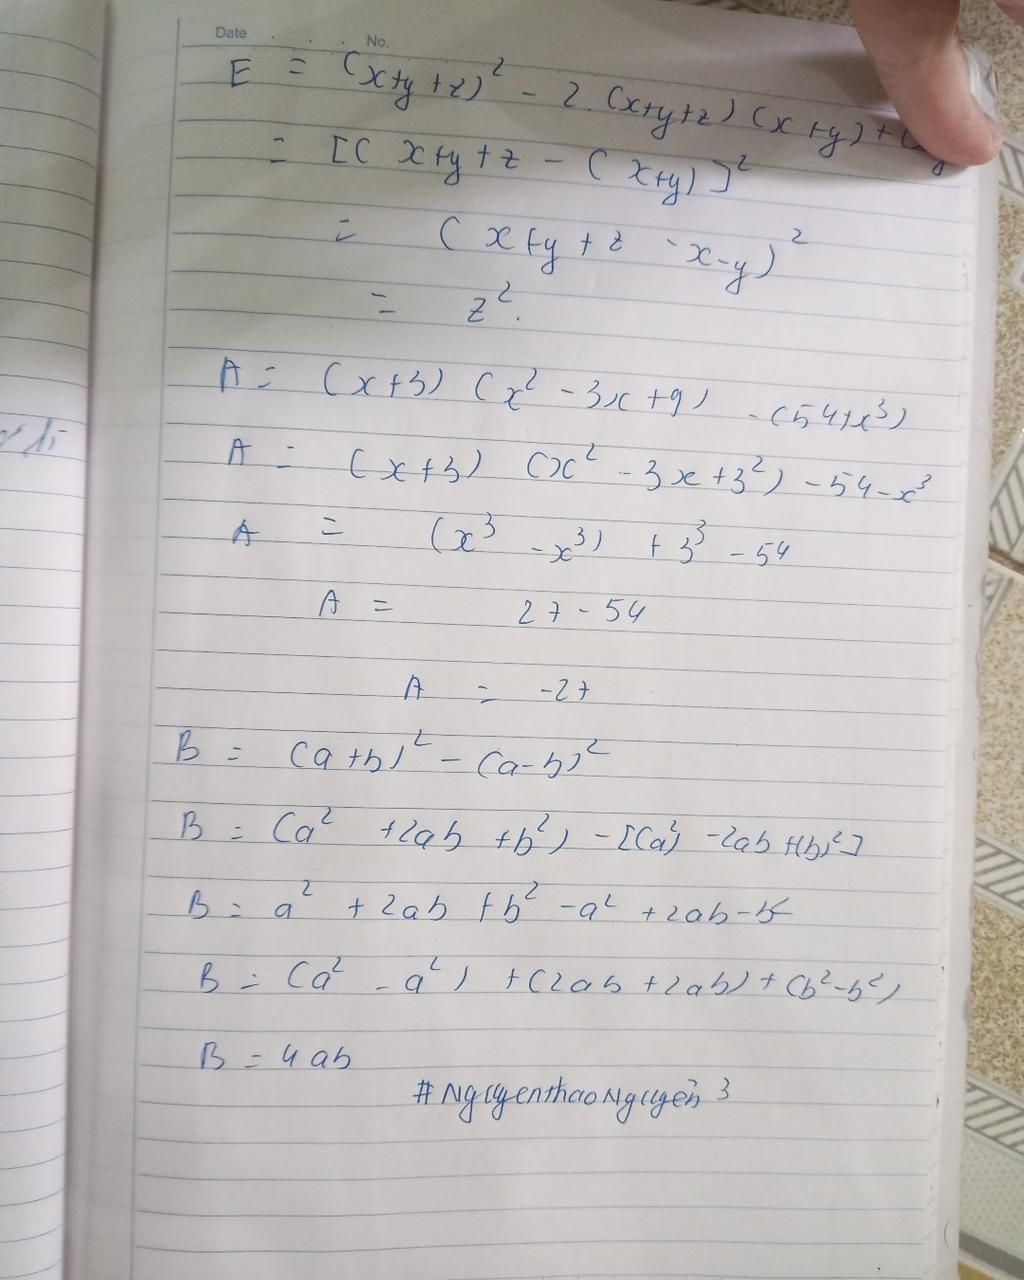 Date No.
E = (x+y+z)² - 2.(x+y+z)(x+y)+(
= [( x+y+z - (x+y)]²
= (x+y+z -x-y)²
= z².
A = (x+3) (x² - 3x +9) -(54+x³)
A = (x+3) (x² - 3x +3²) -54-x³
A = (x³ -x³) + 3³ - 54
A = 27 - 54
A = -27
B = (a+b)² - (a-b)²
B = (a² +2ab +b²) -[(a²) -2ab +(b)²]
B = a² + 2ab +b² -a² +2ab-b²
B = (a² - a²) +(2ab +2ab) + (b²-b²)
B = 4ab
#NguyenthaoNguyên 3